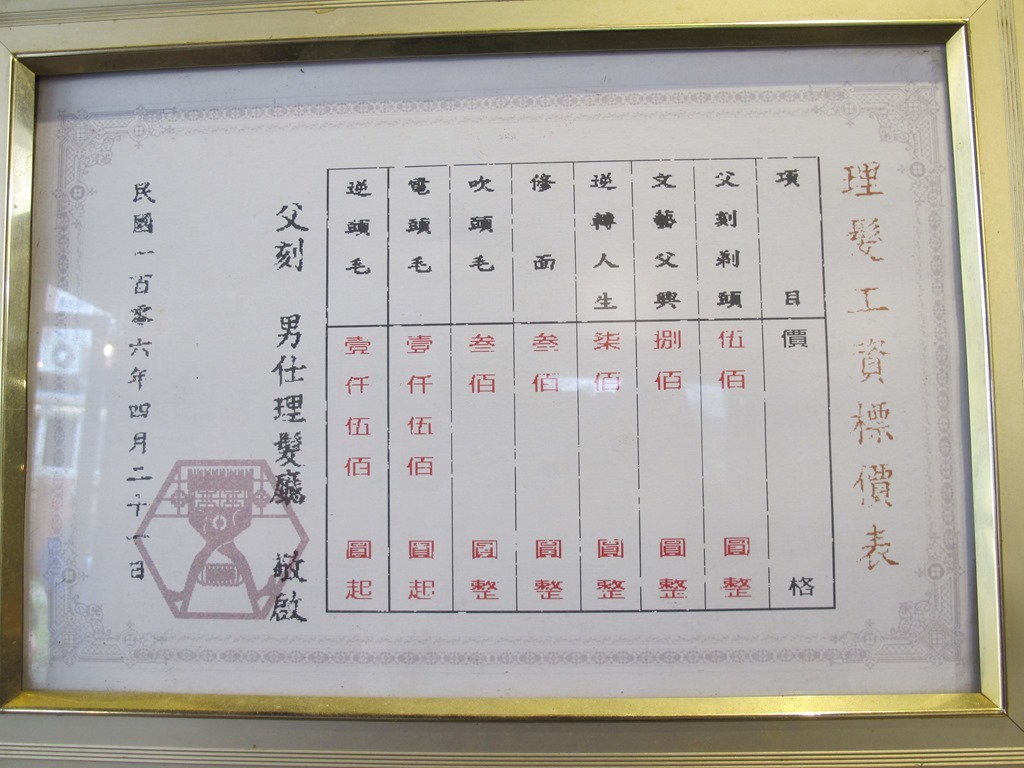 理髮工資標價表
項目 價格
父刻剃頭 伍佰圓整
文藝父興 捌佰圓整
逆轉人生 柒佰圓整
修面 叁佰圓整
吹頭毛 叁佰圓整
電頭毛 壹仟伍佰圓起
逆頭毛 壹仟伍佰圓起
父刻 男仕理髮廳 敬啟
民國一百零六年四月二十八日